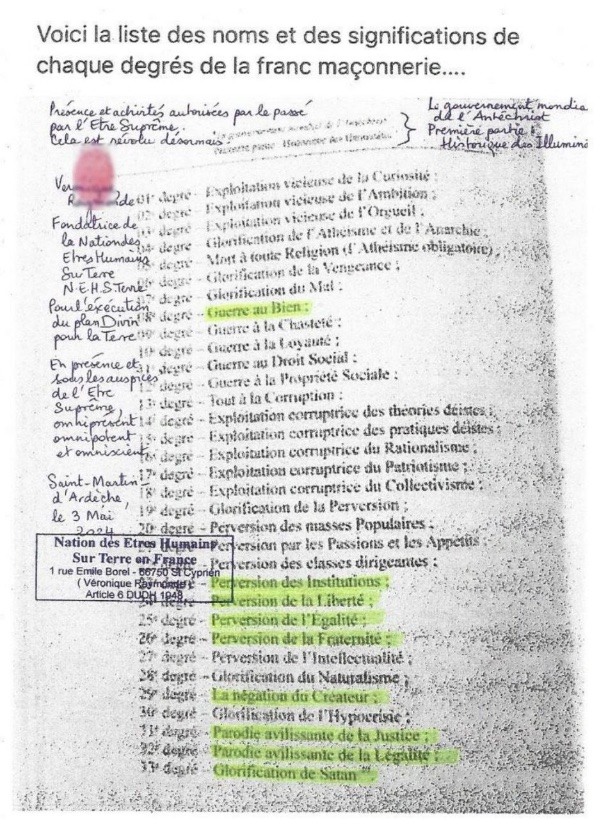 Voici la liste des noms et des significations de
chaque degrés de la franc maçonnerie....
Présence et activités autorisées par le passé
par l'Etre Suprême.
Cela est révolu désormais.
Le gouvernement mondia
de l'Antéchrist
Première partie :
Historique des Illumin
Fondatrice de
la Nation des
Etres Humains
Sur Terre
N.E.H.S.Terre
Pour l'éxécution
du plan Divin
pour la Terre
En présence et
sous les auspices
de l'Etre
Suprême,
omniprésent
omnipotent
et omniscient
Saint-Martin
d'Ardèche,
le 3 Mai
2024
Nation des Etres Humains
Sur Terre en France
1 rue Emile Borel - 66750 St Cyprien
( Véronique Raymonde )
Article 6 DUDH 1948
01e degré - Exploitation vicieuse de la Curiosité ;
02e degré - Exploitation vicieuse de l'Ambition ;
03e degré - Exploitation vicieuse de l'Orgueil ;
04e degré - Glorification de l'Athéisme et de l'Anarchie ;
05e degré - Mort à toute Religion (l'Athéisme obligatoire) ;
degré - Glorification de la Vengeance ;
degré - Glorification du Mal ;
08e degré - Guerre au Bien ;
09e degré - Guerre à la Chasteté ;
10e degré - Guerre à la Loyauté ;
11e degré - Guerre au Droit Social ;
12e degré - Guerre à la Propriété Sociale ;
13e degré - Tout à la Corruption ;
14e degré - Exploitation corruptrice des théories déistes ;
15e degré - Exploitation corruptrice des pratiques déistes ;
16e degré - Exploitation corruptrice du Rationalisme ;
17e degré - Exploitation corruptrice du Patriotisme ;
18e degré - Exploitation corruptrice du Collectivisme ;
19e degré - Glorification de la Perversion ;
20e degré - Perversion des masses Populaires ;
Perversion par les Passions et les Appétits
Perversion des classes dirigeantes ;
Perversion des Institutions ;
24e degré - Perversion de la Liberté ;
25e degré - Perversion de l'Égalité ;
26e degré - Perversion de la Fraternité ;
27e degré - Perversion de l'Intellectualité ;
28e degré - Glorification du Naturalisme ;
29e degré - La négation du Créateur ;
30e degré - Glorification de l'Hypocrisie ;
31e degré - Parodie avilissante de la Justice ;
32e degré - Parodie avilissante de la Légalité ;
33e degré - Glorification de Satan